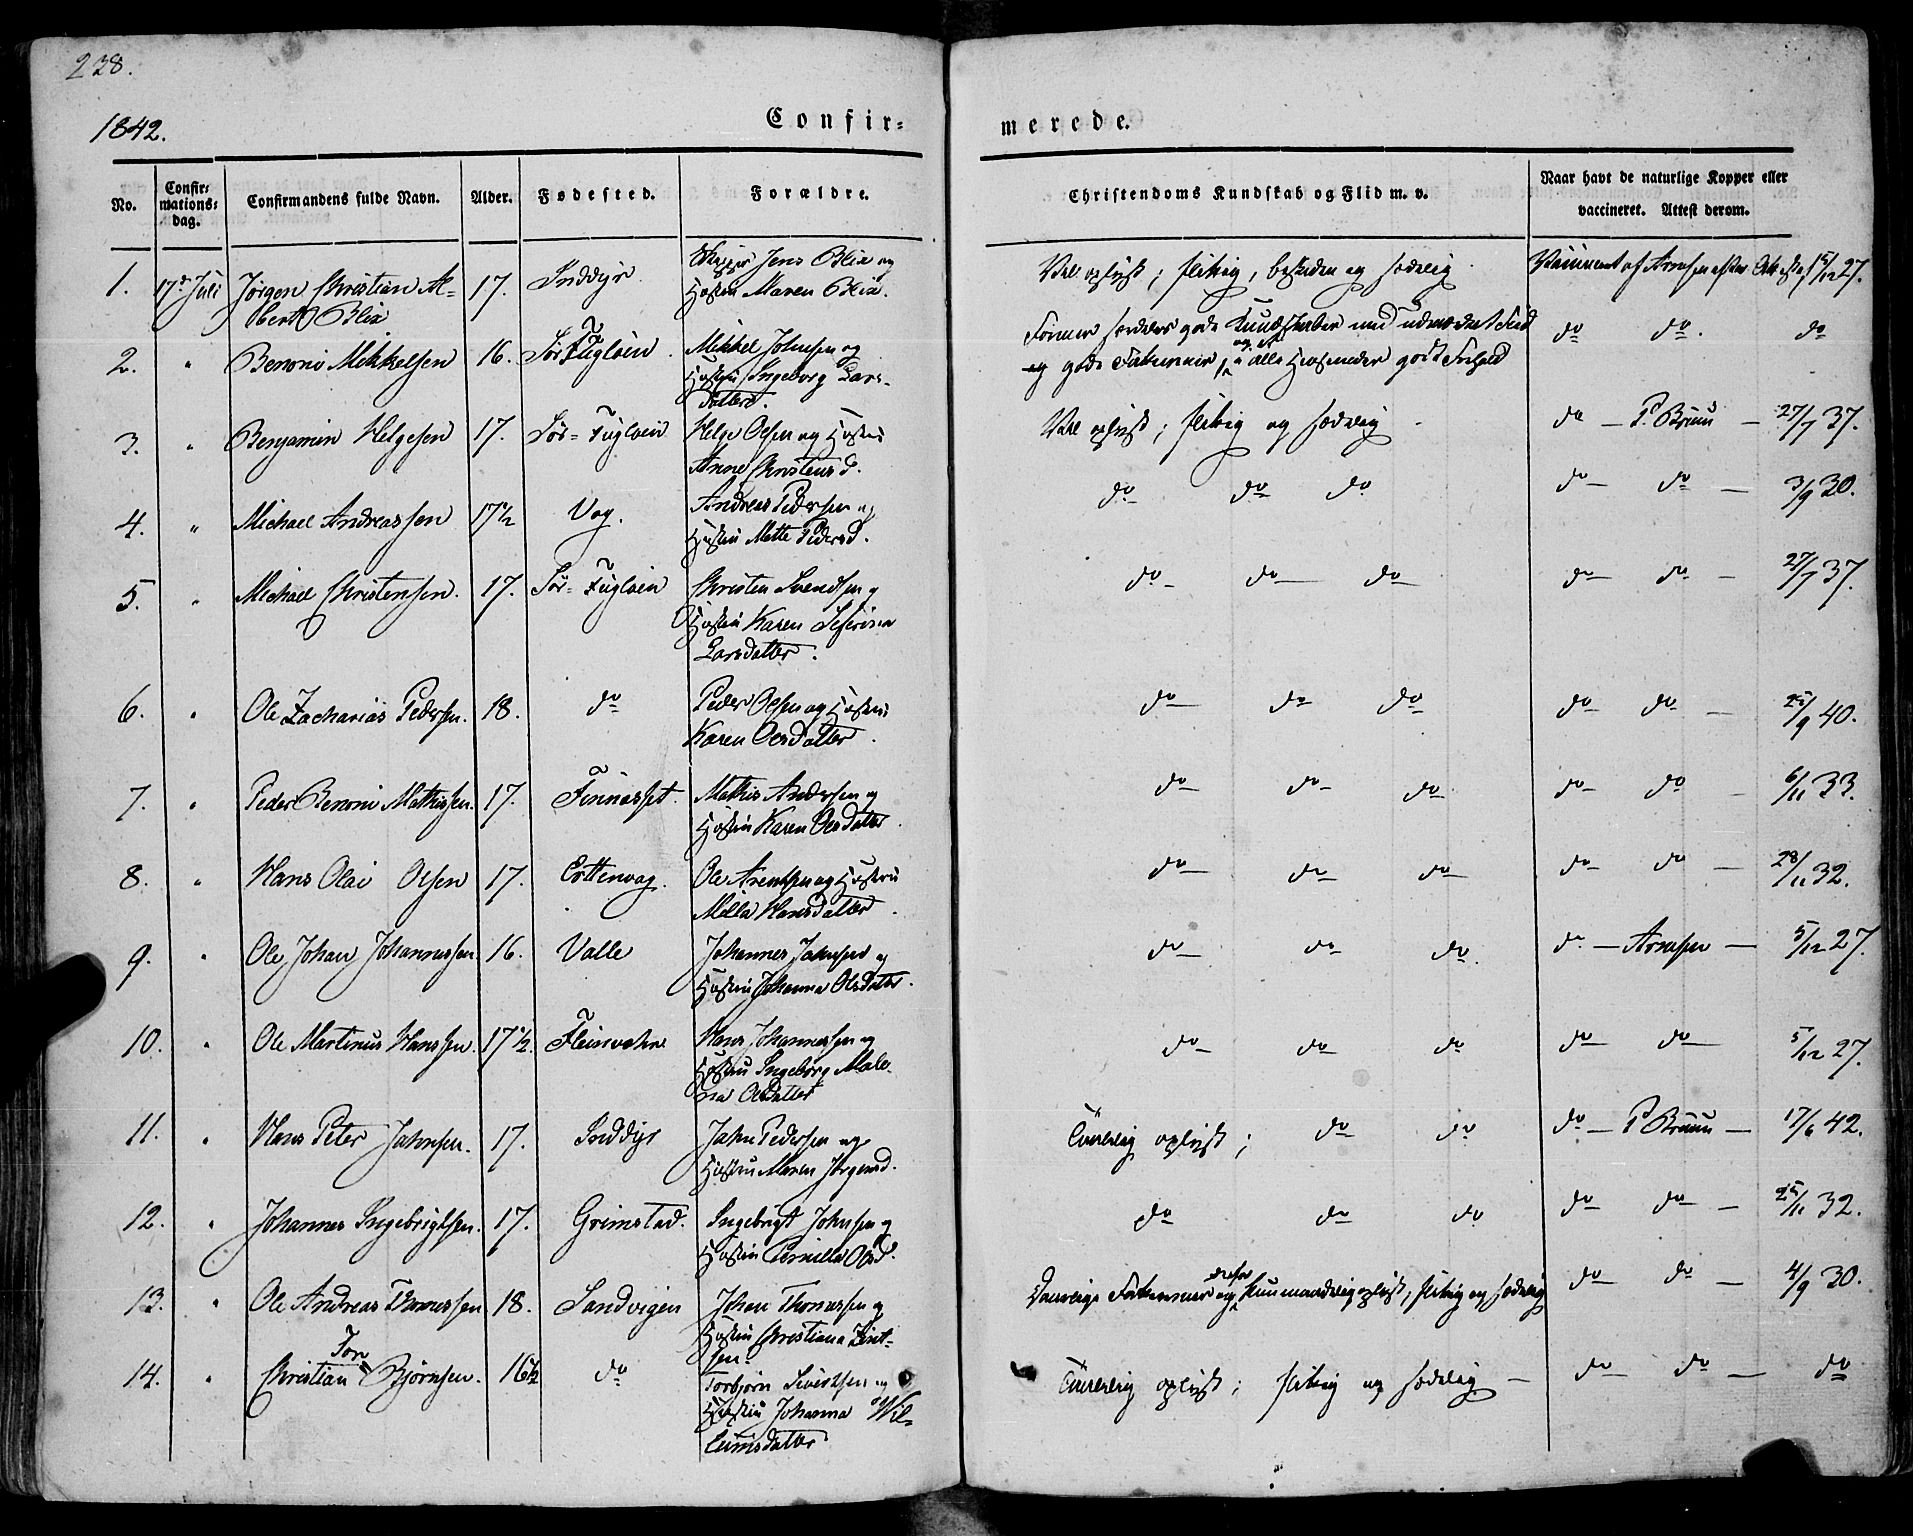 238.
1842.
Confir=
merede.
No.
Confir=
mations=
dag.
Confirmandens fulde Navn.
Alder.
Fødested.
Forældre.
Christendoms Kundskab og Flid m. v.
Naar havt de naturlige Kopper eller
vaccineret. Attest derom.
1. 17de Juli Jørgen Christian Al=
bert Blix 17. Inddyr Jens Blix og
Hustru Maren Blix. Vel oplyst; flittig, beskeden og sædelig Vaccineret af Arnesen efter Attest af 15/12 27.
2. " Benoni Mikkelsen 16. Sør Fugløen Mikkel Johnsen og
Hustru Ingeborg Lars=
datter. gode Kundskaber med udmærket Flid
og gode og i alle Henseender godt Forhold do do. do
3. " Benjamin Helgesen 17. Sør=Fugløen Helge Olsen og Hustru
Anne Christensd. Vel oplyst; flittig og sædelig do — P. Bruun — 27/7 37.
4. " Michael Andreassen 17½ Vog. Andreas Pedersen og
Hustru Mette Pedersd. do do do do — do — 3/9 30.
5. " Michael Christensen. 17. Sør=Fugløen Christen Svendsen og
Hustru Karen Seferina
Larsdatter. do do do do do — 27/7 37.
6. " Ole Zacharias Pedersen. 18. do Peder Olsen og Hustru
Karen Olsdatter. do do do do do — 25/9 40.
7. " Peder Benoni Mathissen. 17. Finnesset. Mathis Andersen og
Hustru Karen Olsdatter. do do do do do — 6/11 33.
8. " Hans Olai Olsen 17. Erttenvag. Ole Arentsen og Hustru
Milla Hansdatter. do do do do do — 28/11 32.
9. " Ole Johan Johannessen 16. Valle Johannes Johnsen og
Hustru Johanna Olsdatter. do do do. do — Arnesen — 5/12 27.
10. " Ole Martinus Hanssen. 17½. Fleinvær Hans Johannessen og
Hustru Ingeborg Male=
na Olsdatter do do do do do 5/12 27.
11. " Hans Peter Jahnsen. 17. Inddyr Jahn Pedersen og
Hustru Maren Jørgensd. Temmelig oplyst; do do do — P Bruun — 17/6 42.
12. " Johannes Ingebrigtsen. 17. Grimstad. Ingebrigt Johnsen og
Hustru Pernilla Olsd. do do do do do — 25/11 32.
13. " Ole Andreas Thomassen 18. Sandvigen Johan Thomassen og
Hustru Christiana Zint=
sen. og derfor kun maadelig oplyst, flittig og sædelig do do — 4/9 30.
14. " Christian Tor Bjørnsen. 16½ do Torbjørn Sivertsen og
Hustru Johanna Wil=
lumsdatter Temmelig oplyst; flittig og sædelig — do do — do